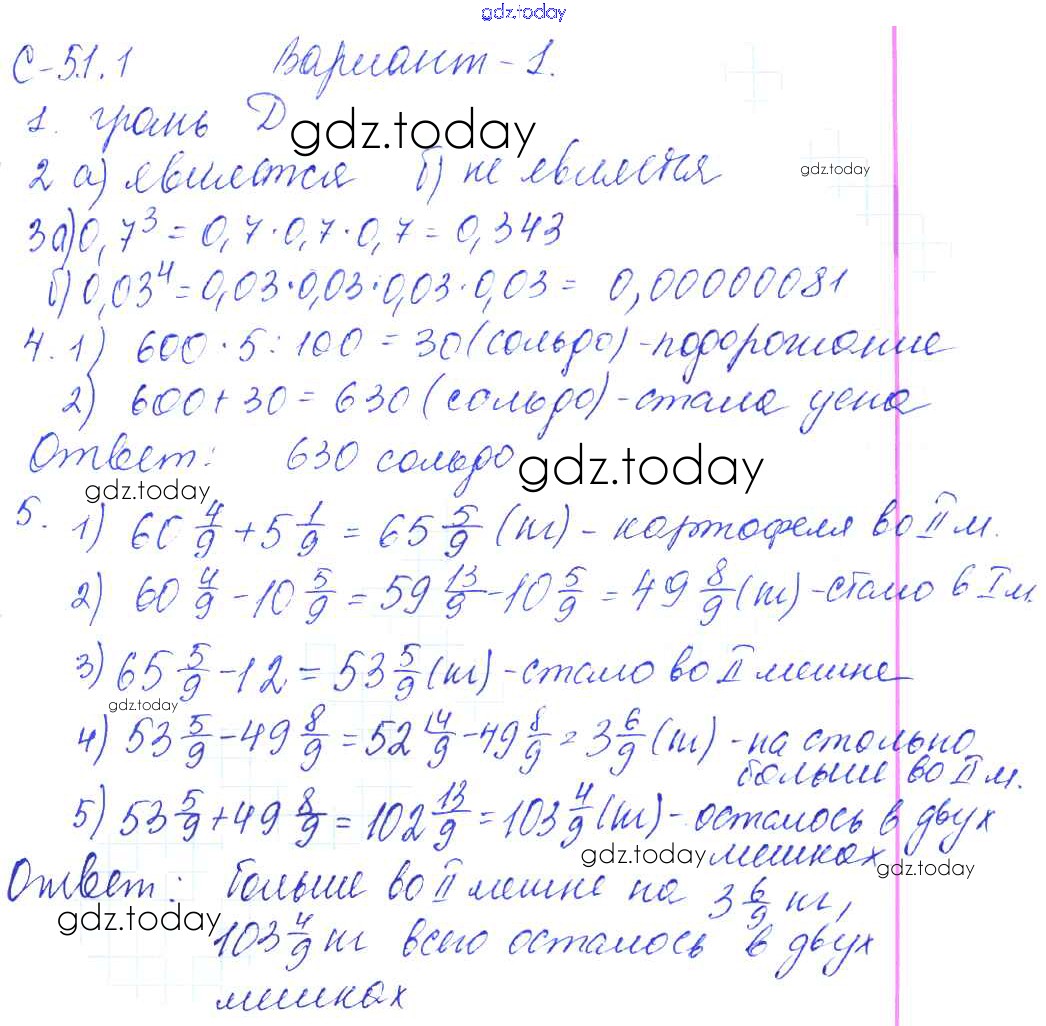 gdz.today
С-51.1 Вариант-1.
1. грань D
gdz.today
2 а) является б) не является
gdz.today
3а) 0,7³ = 0,7·0,7·0,7 = 0,343
б) 0,03⁴ = 0,03·0,03·0,03·0,03 = 0,00000081
4. 1) 600·5:100 = 30 (сольдо) - подорожание
2) 600+30 = 630 (сольдо) - стала цена
Ответ: 630 сольдо
gdz.today
gdz.today
5. 1) 60 4/9 + 5 1/9 = 65 5/9 (кг) - картофеля во II м.
2) 60 4/9 - 10 5/9 = 59 13/9 - 10 5/9 = 49 8/9 (кг) - стало в I м.
3) 65 5/9 - 12 = 53 5/9 (кг) - стало во II мешке
gdz.today
4) 53 5/9 - 49 8/9 = 52 14/9 - 49 8/9 = 3 6/9 (кг) - на столько
больше во II м.
5) 53 5/9 + 49 8/9 = 102 13/9 = 103 4/9 (кг) - осталось в двух
мешках
gdz.today
gdz.today
Ответ: больше во II мешке на 3 6/9 кг,
gdz.today
103 4/9 кг всего осталось в двух
мешках